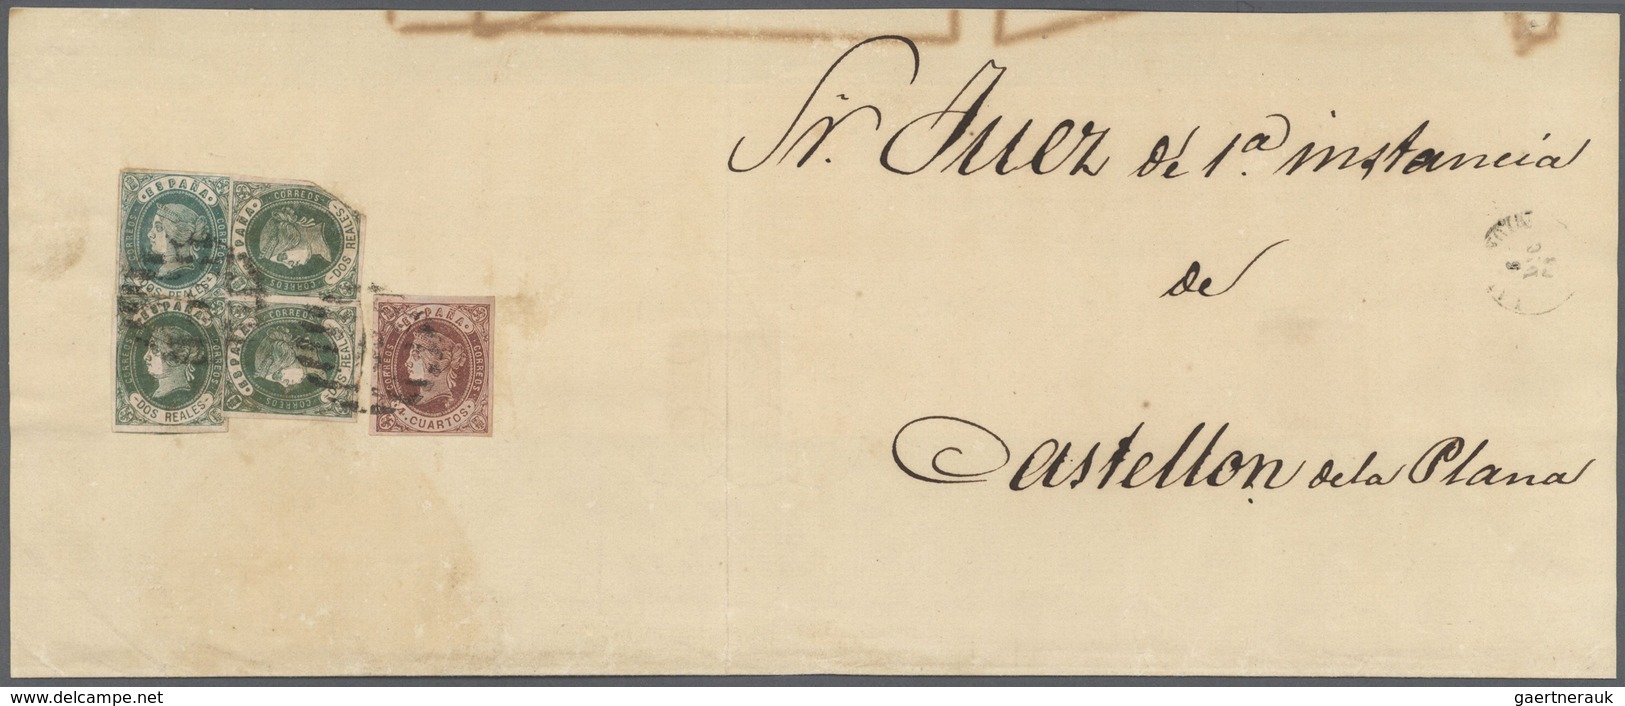 Sr. Juez de 1ª instancia
de
Castellon de la Plana
ESPAÑA
CORREOS
CORREOS
DOS REALES
ESPAÑA
CORREOS
DOS REALES
CORREOS
ESPAÑA
CORREOS
CORREOS
-DOS REALES-
ESPAÑA
CORREOS
DOS REALES
CORREOS
ESPAÑA
CORREOS
CORREOS
4. CUARTOS
delcampe.net
gaertnerauk